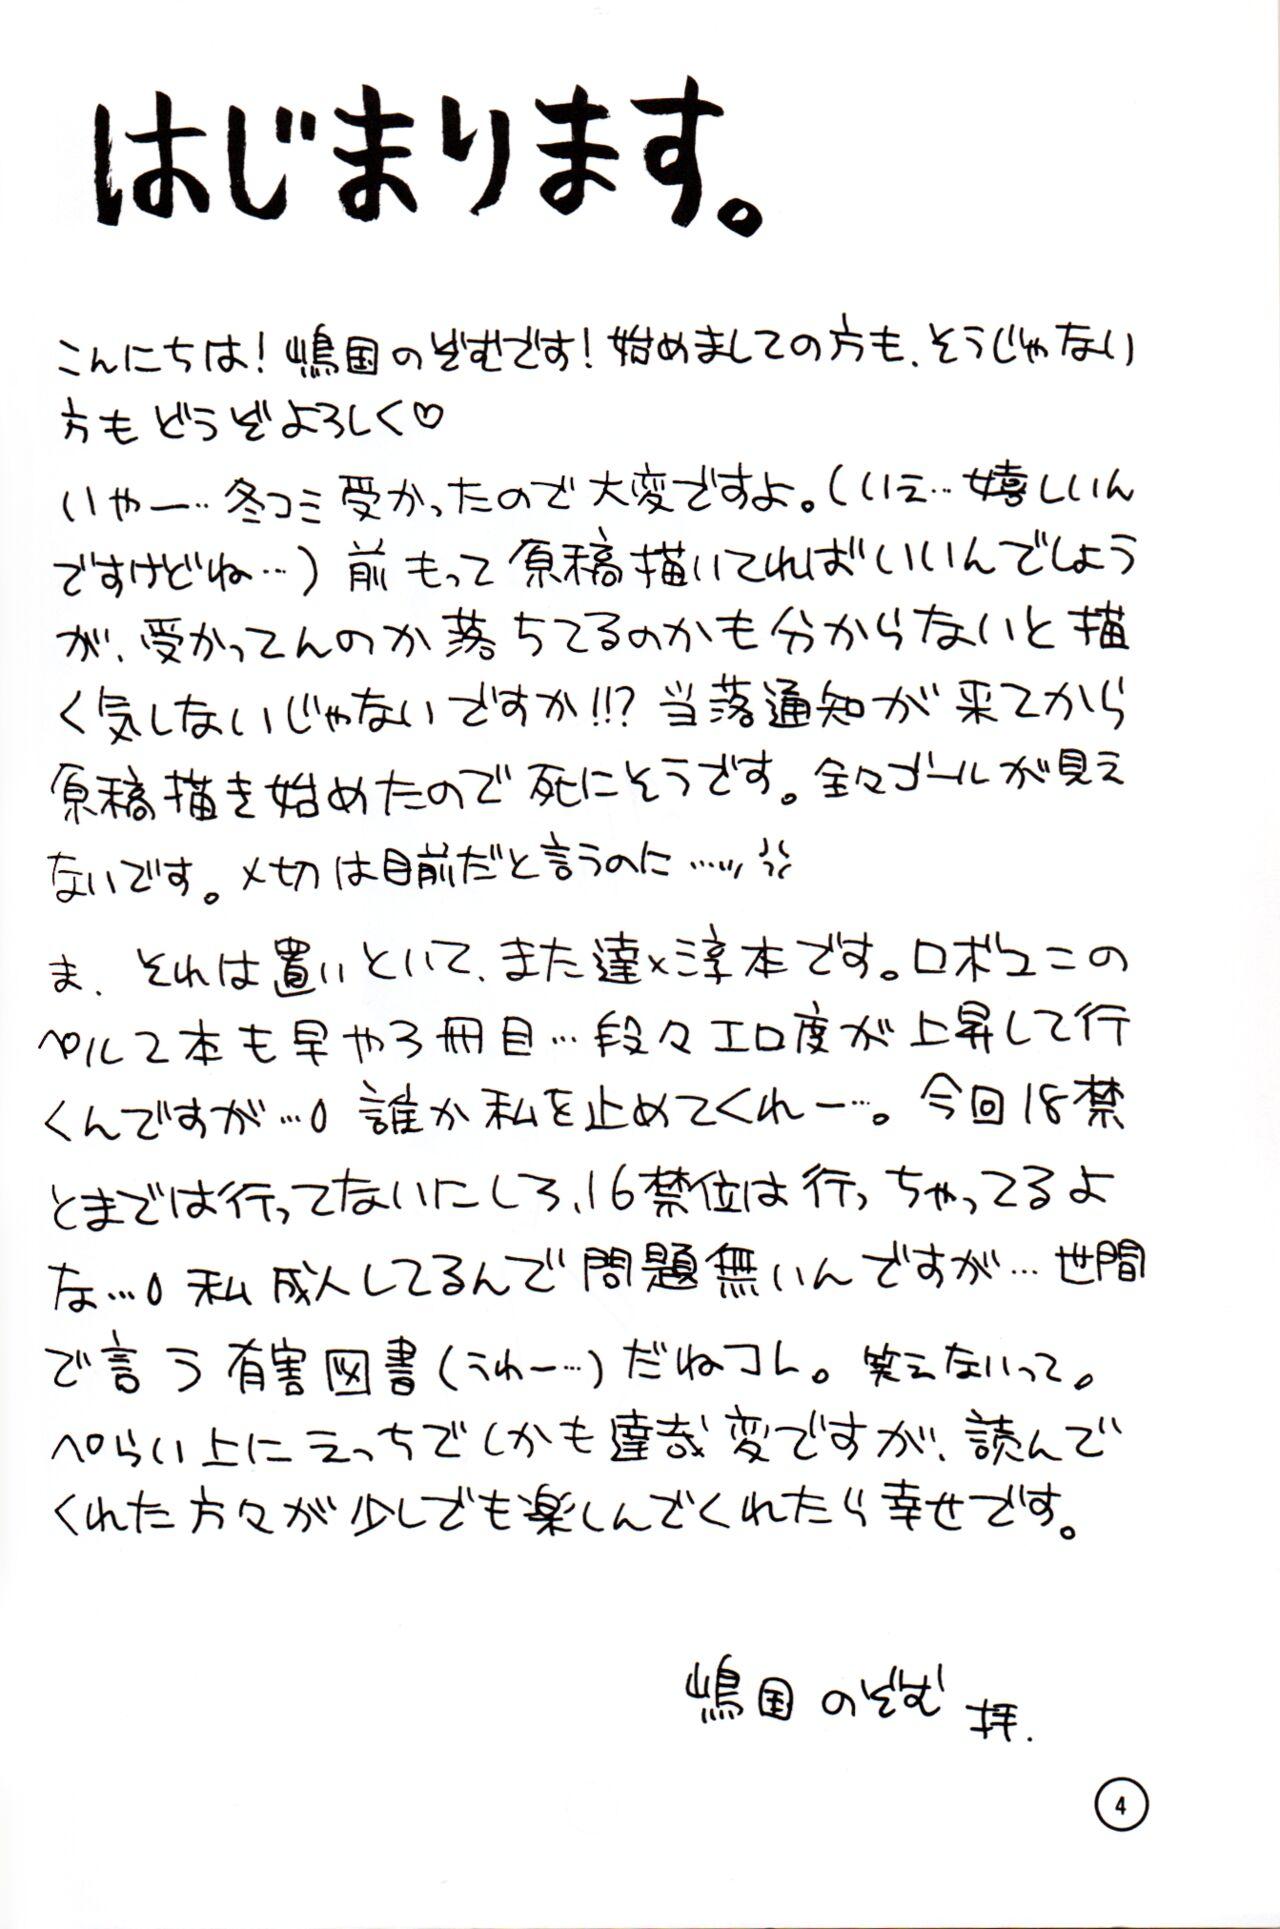 はじまります。
こんにちは!嶋国のぞむです!始めましての方も、そうじゃない
方もどうぞよろしく♡
いやー…冬コミ受かったので大変ですよ。(いえ…嬉しいん
ですけどね…)前もって原稿描いてればいいんでしょう
が、受かってんのか落ちてるのかも分からないと描
く気しないじゃないですか!!?当落通知が来てから
原稿描き始めたので死にそうです。全々ゴールが見え
ないです。〆切は目前だと言うのに……ッ
ま、それは置いといて、また達×淳本です。ロボユニの
ペルソ本も早や3冊目…段々エロ度が上昇して行
くんですが…0 誰か私を止めてくれー…。今回18禁
とまでは行ってないにしろ、16禁位は行っちゃってるよ
な…0 私成人してるんで問題無いんですが…世間
で言う有害図書(うわー…)だねコレ。笑えないって。
ペらい上にえっちでしかも達哉変ですが、読んで
くれた方々が少しでも楽しんでくれたら幸せです。
嶋国のぞむ 拝.
4